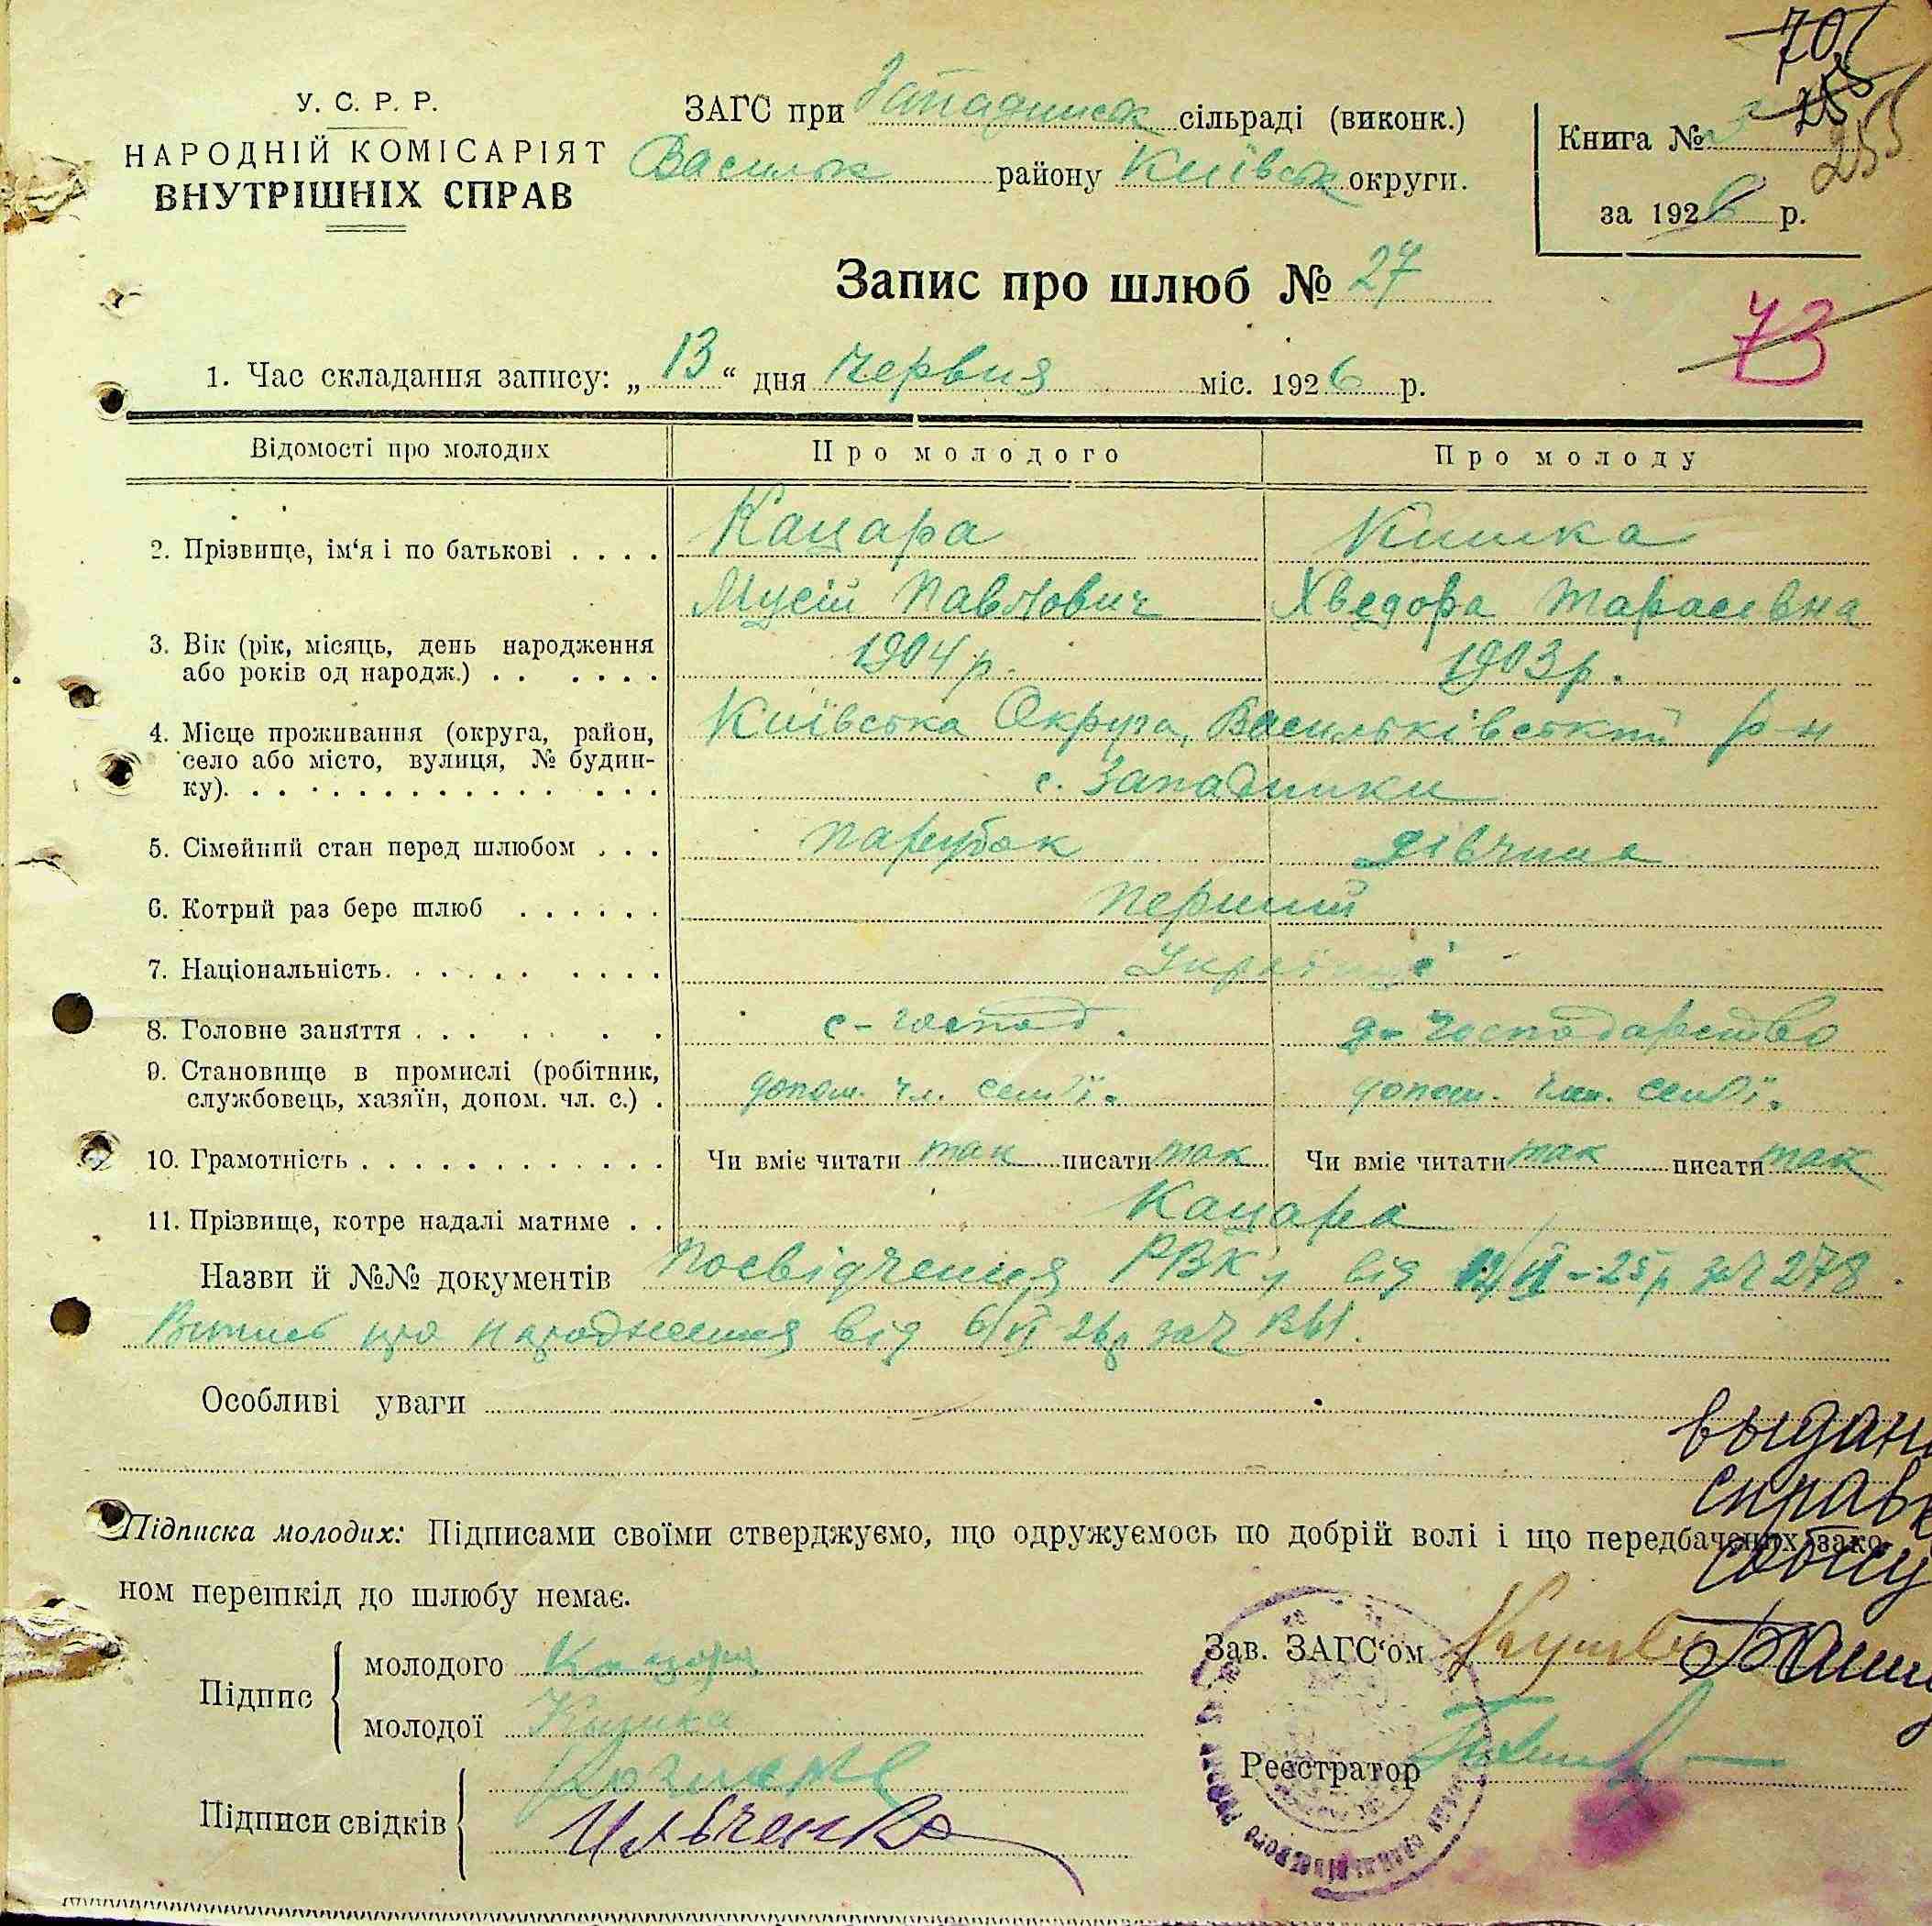 70
255
255
У. С. Р. Р.
НАРОДНІЙ КОМІСАРІЯТ
ВНУТРІШНІХ СПРАВ
ЗАГС при Западинськ сільраді (виконк.)
Васильк району Київськ округи.
Книга №
за 1926 р.
Запис про шлюб № 27
73
1. Час складання запису: „13“ дня червня міс. 1926 р.
Відомості про молодих Про молодого Про молоду
2. Прізвище, ім‘я і по батькові Кацара Кишка
Мусій Павлович Хведора Тарасівна
3. Вік (рік, місяць, день народження
або років од народж.) 1904 р. 1903 р.
4. Місце проживання (округа, район, Київська Округа, Васильківський р-н
село або місто, вулиця, № будин-
ку). с. Западинки
5. Сімейний стан перед шлюбом парубок дівчина
6. Котрий раз бере шлюб перший
7. Національність Українці
8. Головне заняття с-господ. д-господарство
9. Становище в промислі (робітник,
службовець, хазяїн, допом. чл. с.) допом. чл. сем'ї. допом. член. сем'ї.
10. Грамотність Чи вміє читати так писати так Чи вміє читати так писати так
11. Прізвище, котре надалі матиме Кацара
Назви й №№ документів Посвідчення РВК від 25 р зач 278.
Витись про народження від 6/VI 26р зач
Особливі уваги
Підписка молодих: Підписами своїми стверджуємо, що одружуємось по добрій волі і що передбачених зако-
ном перешкід до шлюбу немає.
Підпис молодого Кацара
молодої Кишка
Зав. ЗАГС‘ом
Реєстратор
Підписи свідків
Ильченко